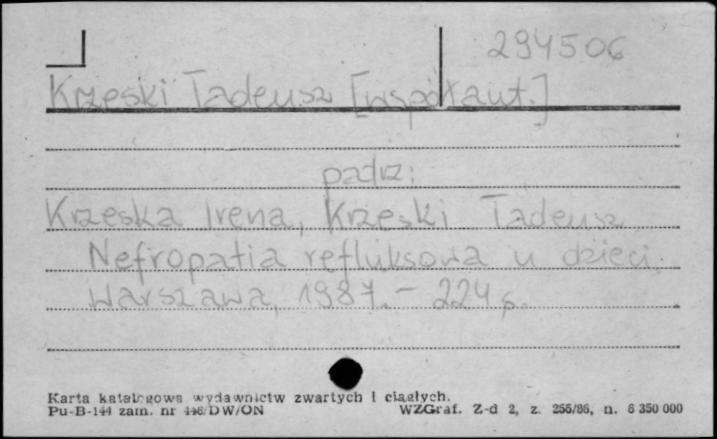 294506
Krzeski Tadeusz [współaut.]
patrz:
Krzeska Irena, Krzeski Tadeusz.
Nefropatia refluksowa u dzieci.
Warszawa, 1987. - 224 s.
Karta katalogowa wydawnictw zwartych i ciągłych.
Pu-B-144 zam. nr 446/DW/ON WZGraf. Z-d 2, z. 255/86, n. 6 350 000